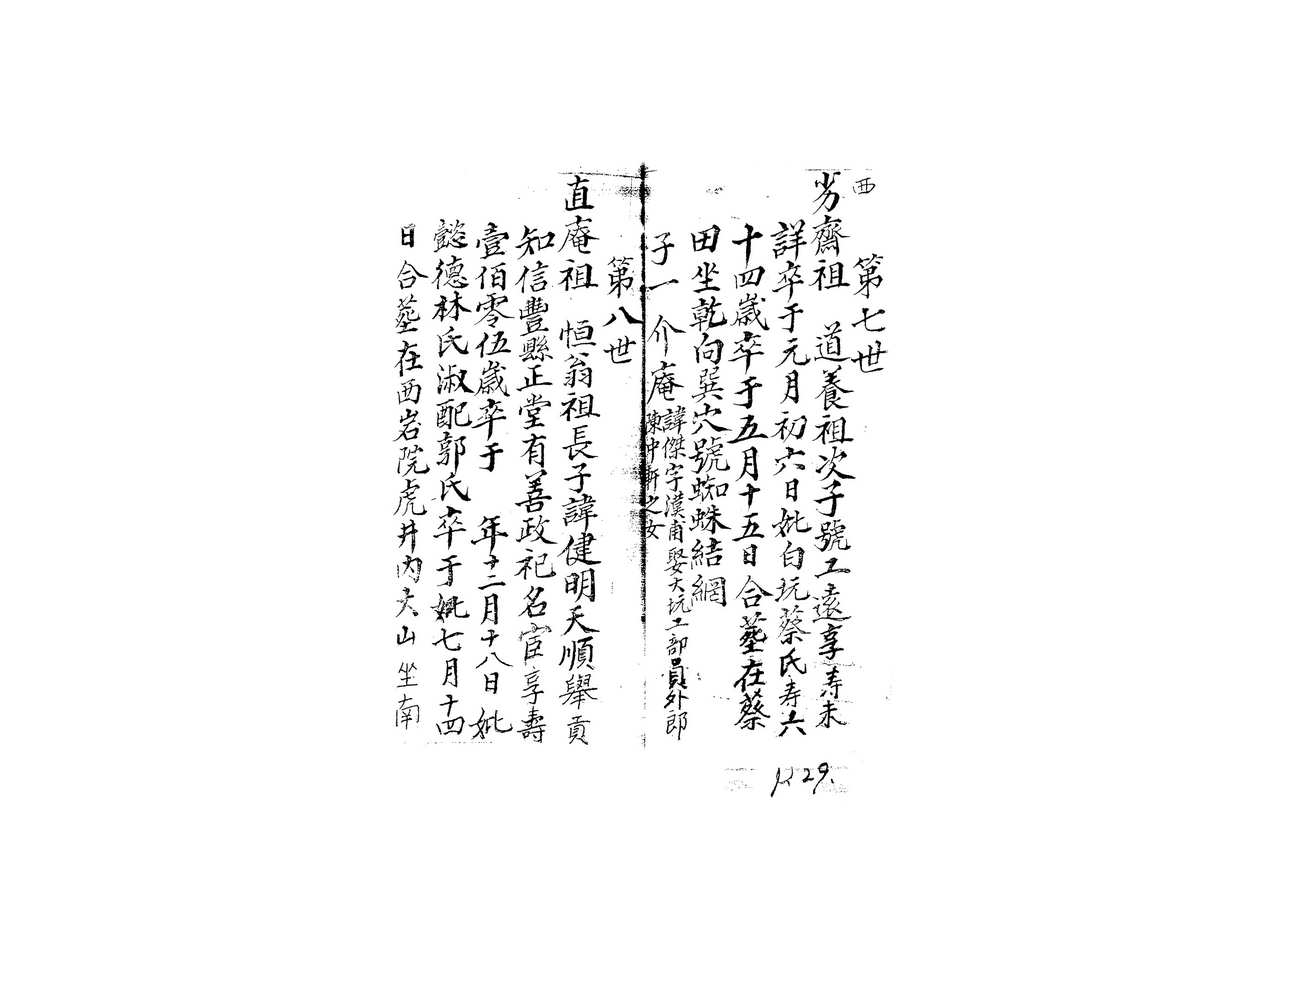 西
第七世
劣齋祖 道養祖次子號工遠享寿未
詳卒于元月初六日妣白坑蔡氏寿六
十四歲卒于五月十五日合墓在蔡
田坐乾向巽穴號蜘蛛結網
子一 介庵 諱傑字漢甫娶大坑工部員外郎
陳仲軒之女
第八世
直庵祖 恒翁祖長子諱健明天順舉貢
知信豐縣正堂有善政祀名宦享壽
壹佰零伍歲卒于 年十二月十八日妣
懿德林氏淑配郭氏卒于妣七月十四
日合墓在西岩院虎井内大山坐南
P.29.